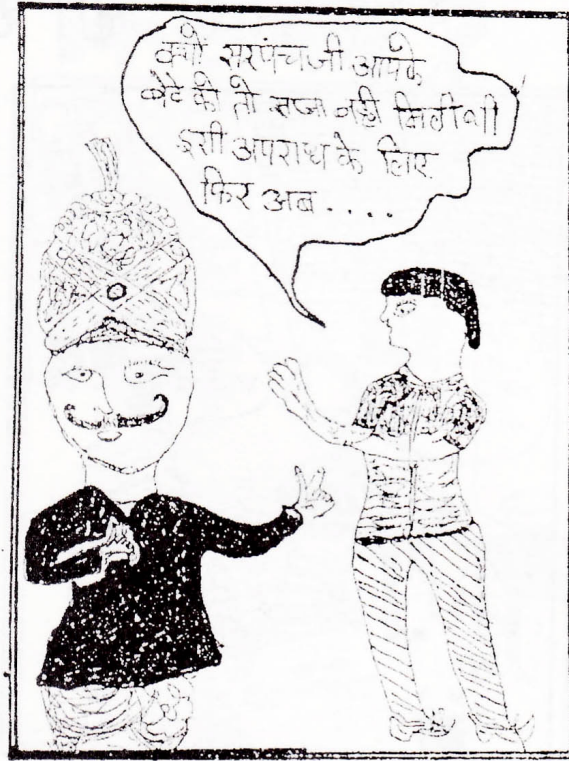 क्यों सरपंचजी आपके
बेटे को तो सजा नही मिली थी
इसी अपराध के लिए
फिर अब . . . .